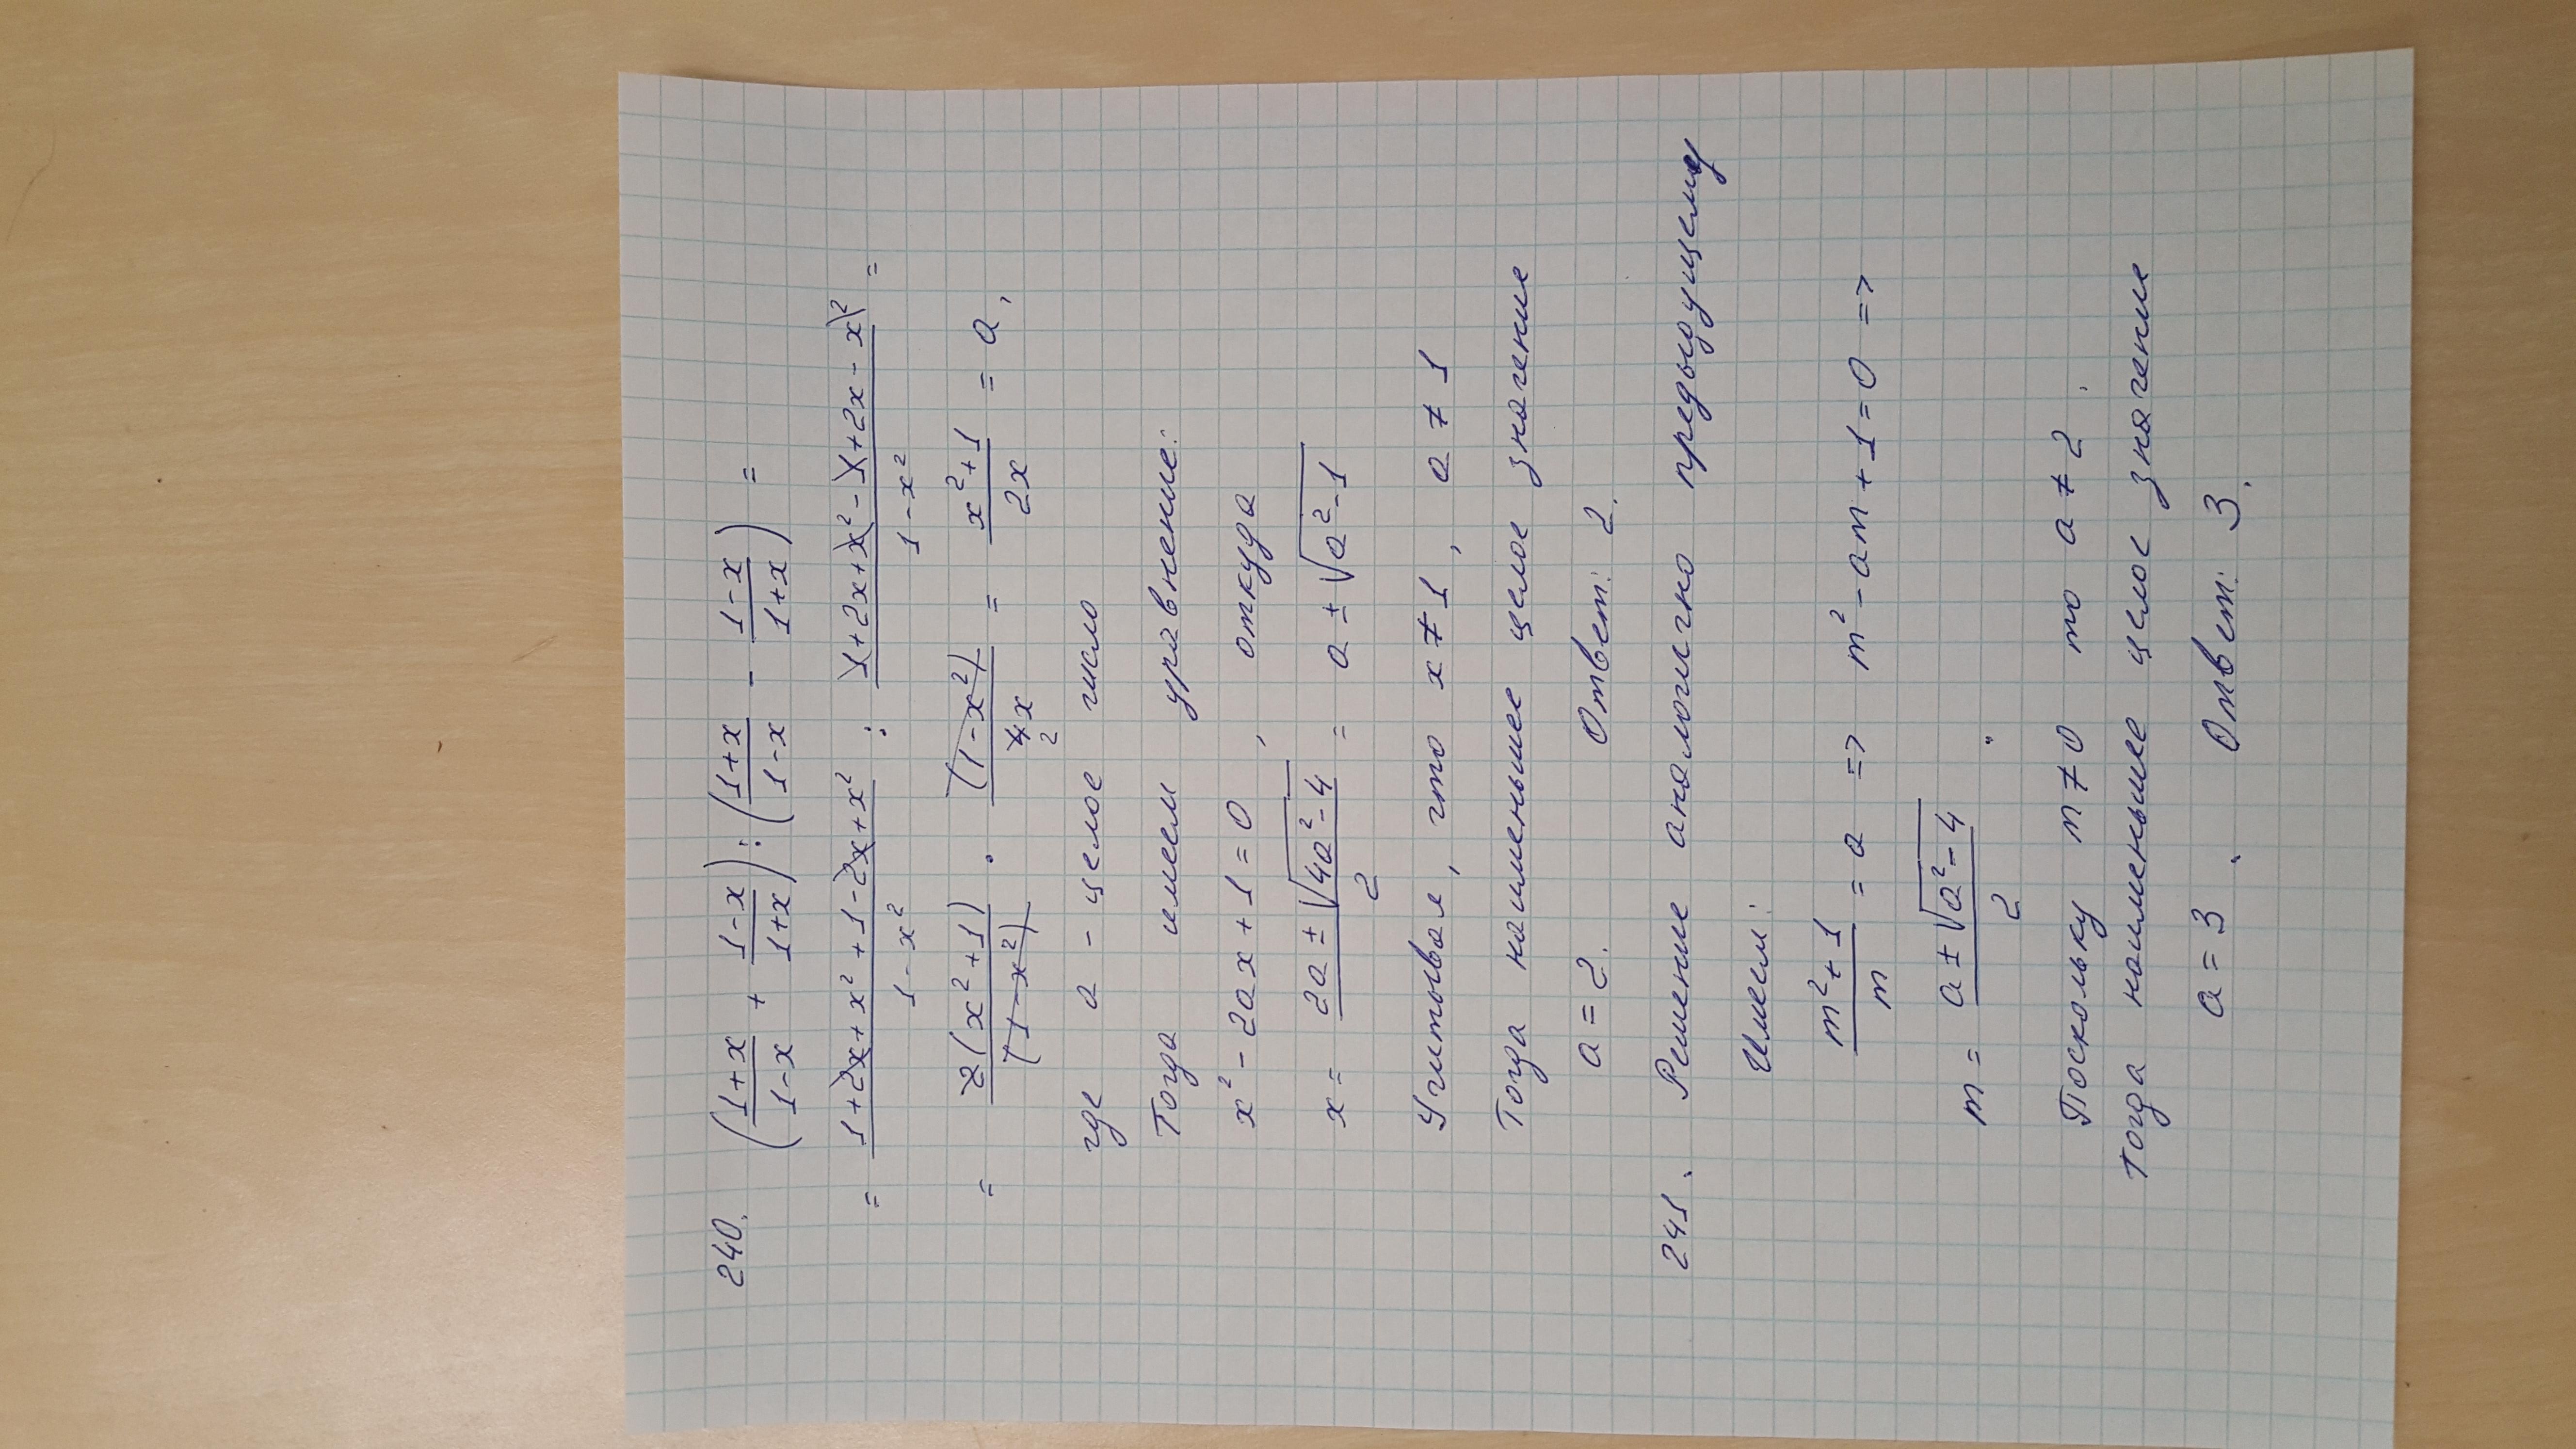 240. ((1+x)/(1-x) + (1-x)/(1+x)) : ((1+x)/(1-x) - (1-x)/(1+x)) =
= (1+2x+x²+1-2x+x²)/(1-x²) : (1+2x+x²-1+2x-x²)/(1-x²) =
= 2(x²+1)/(1-x²) · (1-x²)/(4x) = (x²+1)/(2x) = a,
где a - целое число
Тогда имеем уравнение:
x² - 2ax + 1 = 0, откуда
x = (2a ± √(4a²-4))/2 = a ± √(a²-1)
Учитывая, что x ≠ 1, a ≠ 1
Тогда наименьшее целое значение
a = 2. Ответ: 2.
241. Решение аналогично предыдущему
Имеем:
(m²+1)/m = a => m² - am + 1 = 0 =>
m = (a ± √(a²-4))/2.
Поскольку m ≠ 0 то a ≠ 2.
Тогда наименьшее целое значение
a = 3. Ответ: 3.